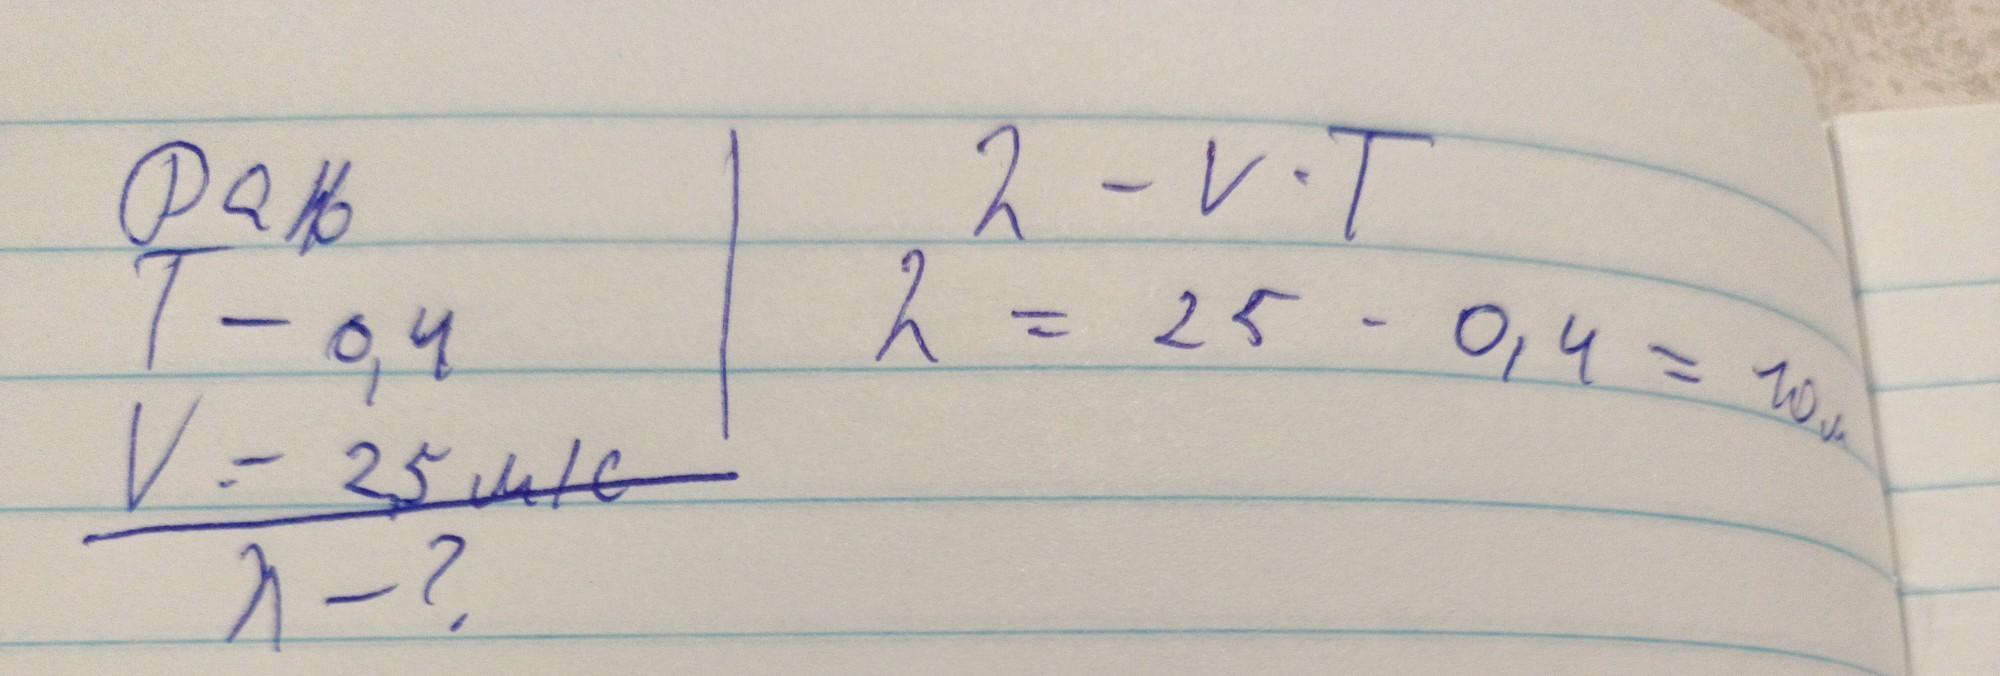 T – 0,4
V = 25 м/с
λ – ?
λ – V · T
λ = 25 · 0,4 = 10 м